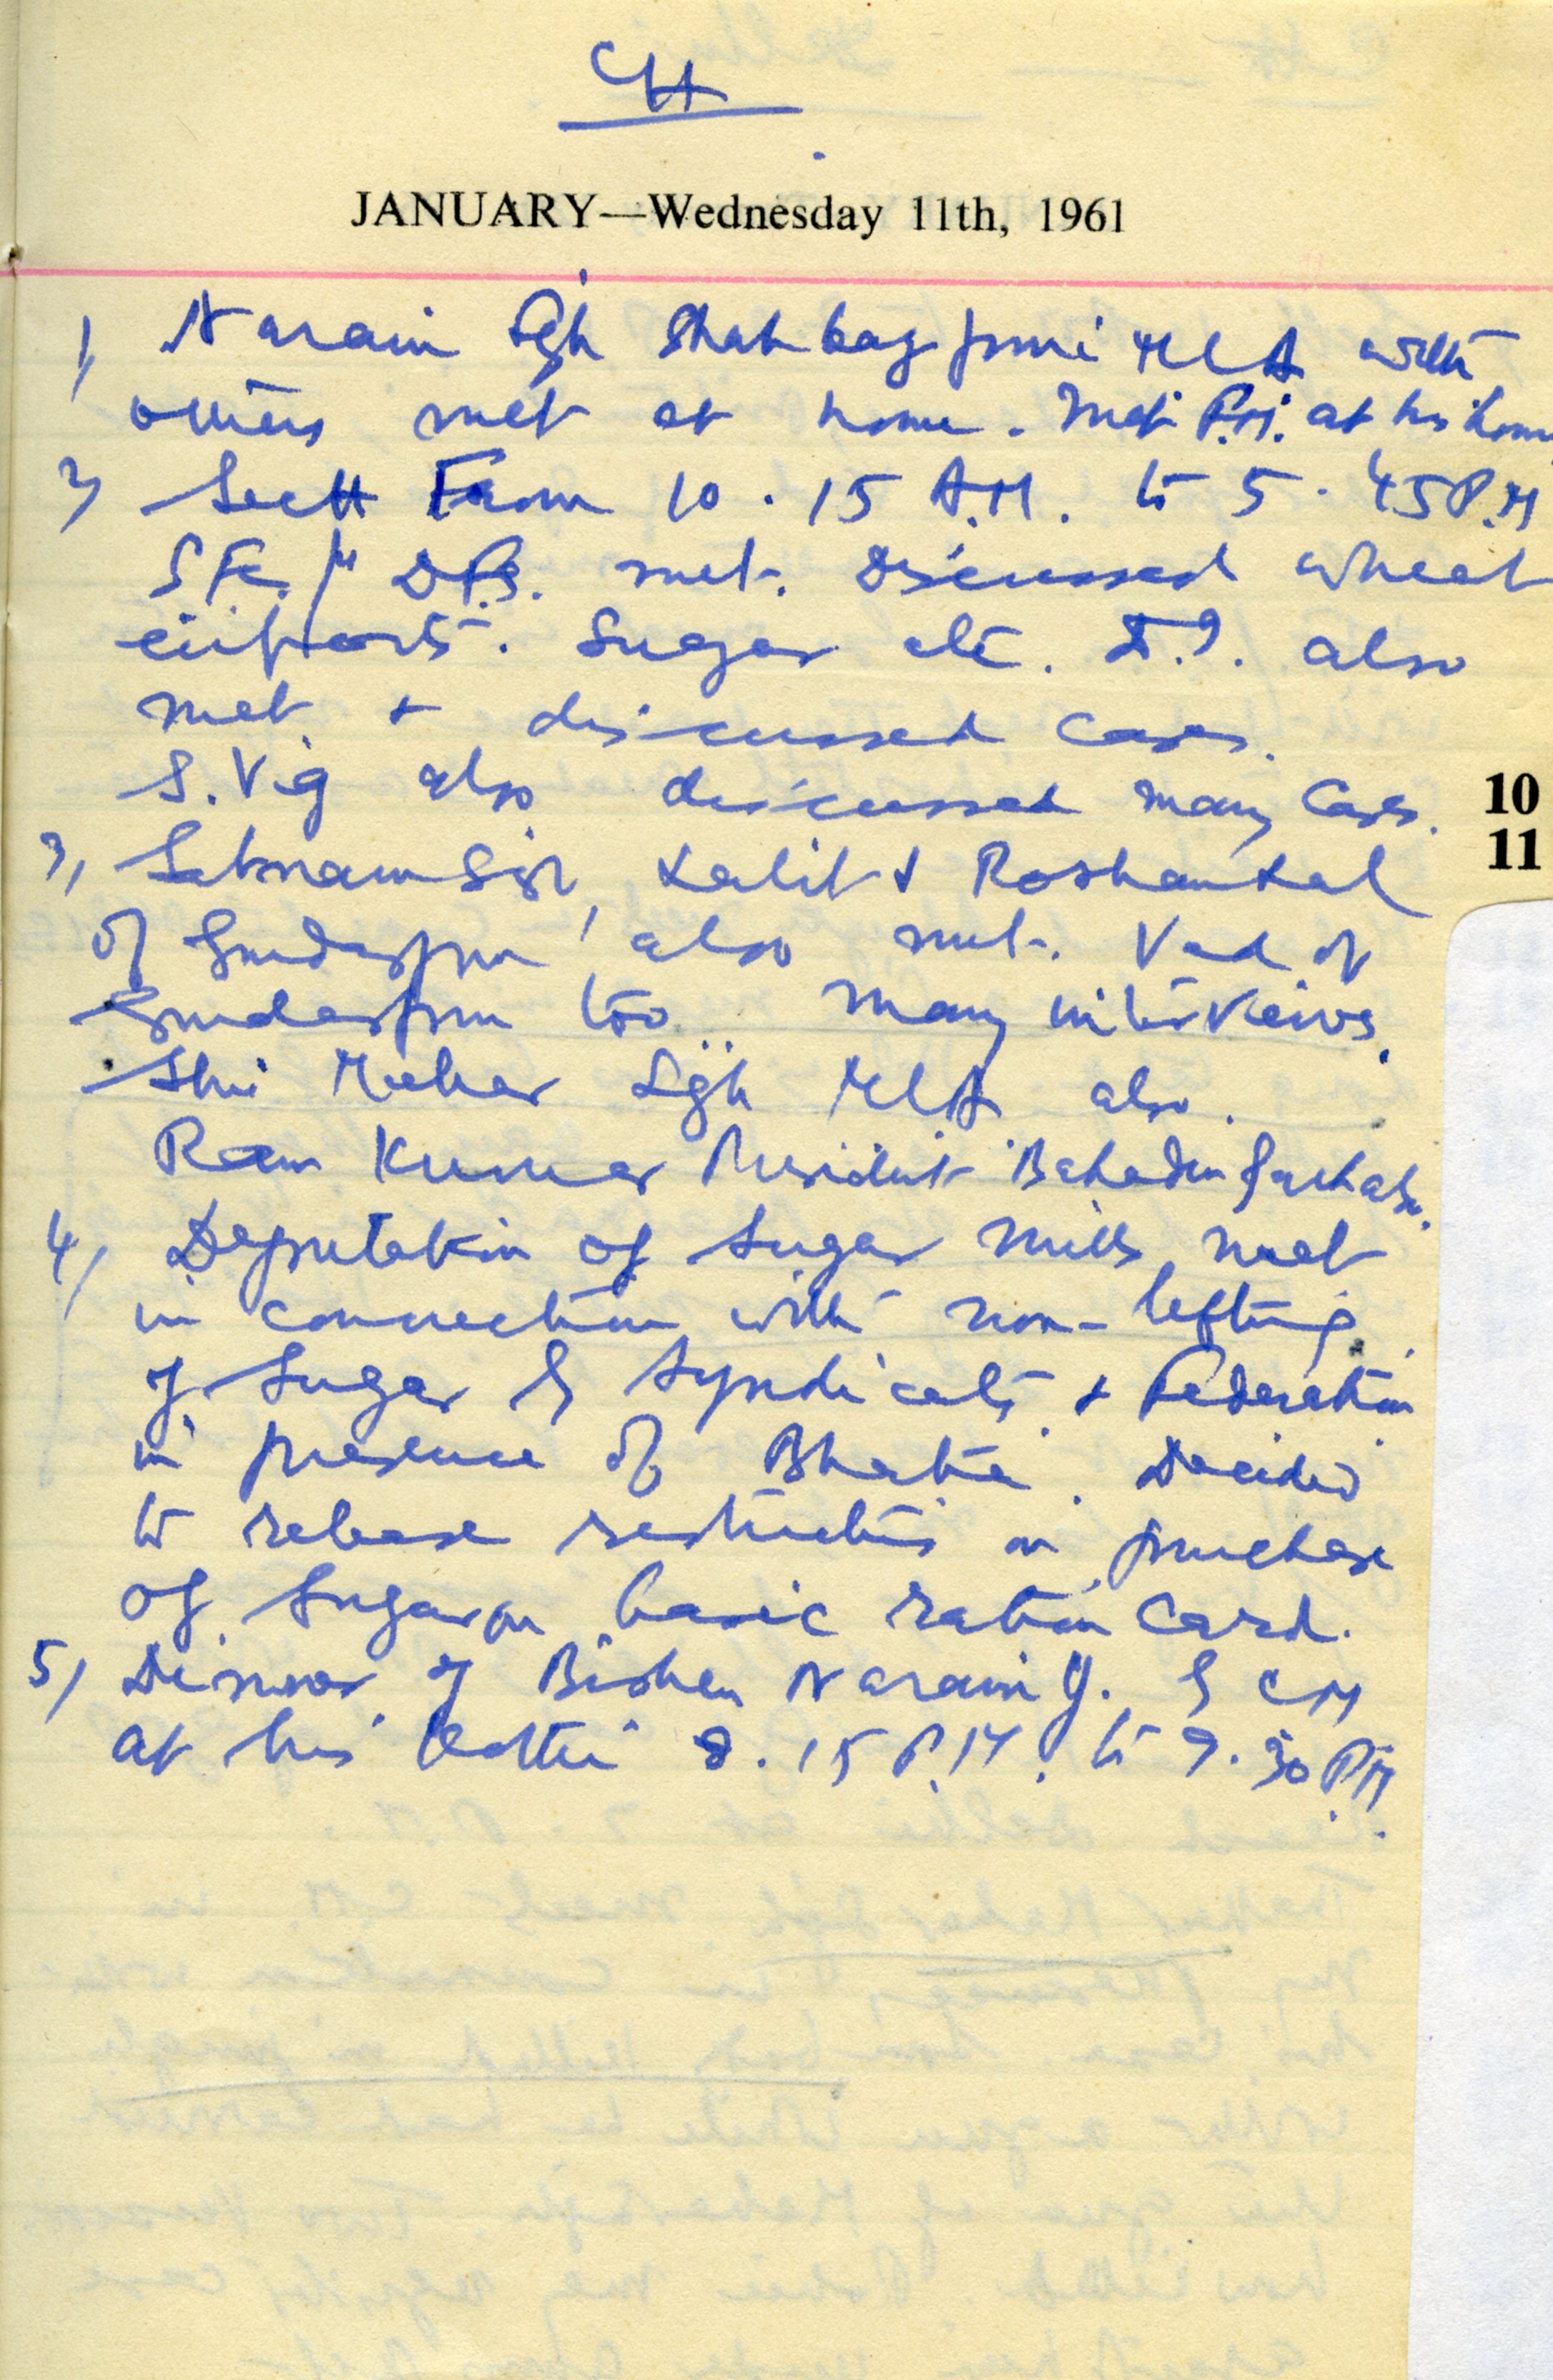 CH
JANUARY—Wednesday 11th, 1961
1) Narain Sgh Shahbazpuri MLA with
others met at home. Met P.M. at his home
2) Sectt From 10.15 A.M. to 5.45 P.M
S.F. & D.F.S. met. Discussed wheat
imports. Sugar etc. also
met & discussed cases.
S. Vig also discussed many cases.
3) Satnam Sgh, Lalit & Roshan Lal
of Gurdaspur also met. Ved of
Gurdaspur too. Many interveiws.
Shri Meher Sgh MLA also.
Ram Kumar President Bahadurgarh also.
4) Deputation of Sugar Mills met
in connection with non-lifting
of Sugar by Syndicates & Federation
in presence of Bhatia. Decided
to release restrictions on purchase
of Sugar on basic ration card.
5) Dinner of Bishan Narain J. by CM
at his Kothi 8.15 P.M. to 9.30 PM.
10
11